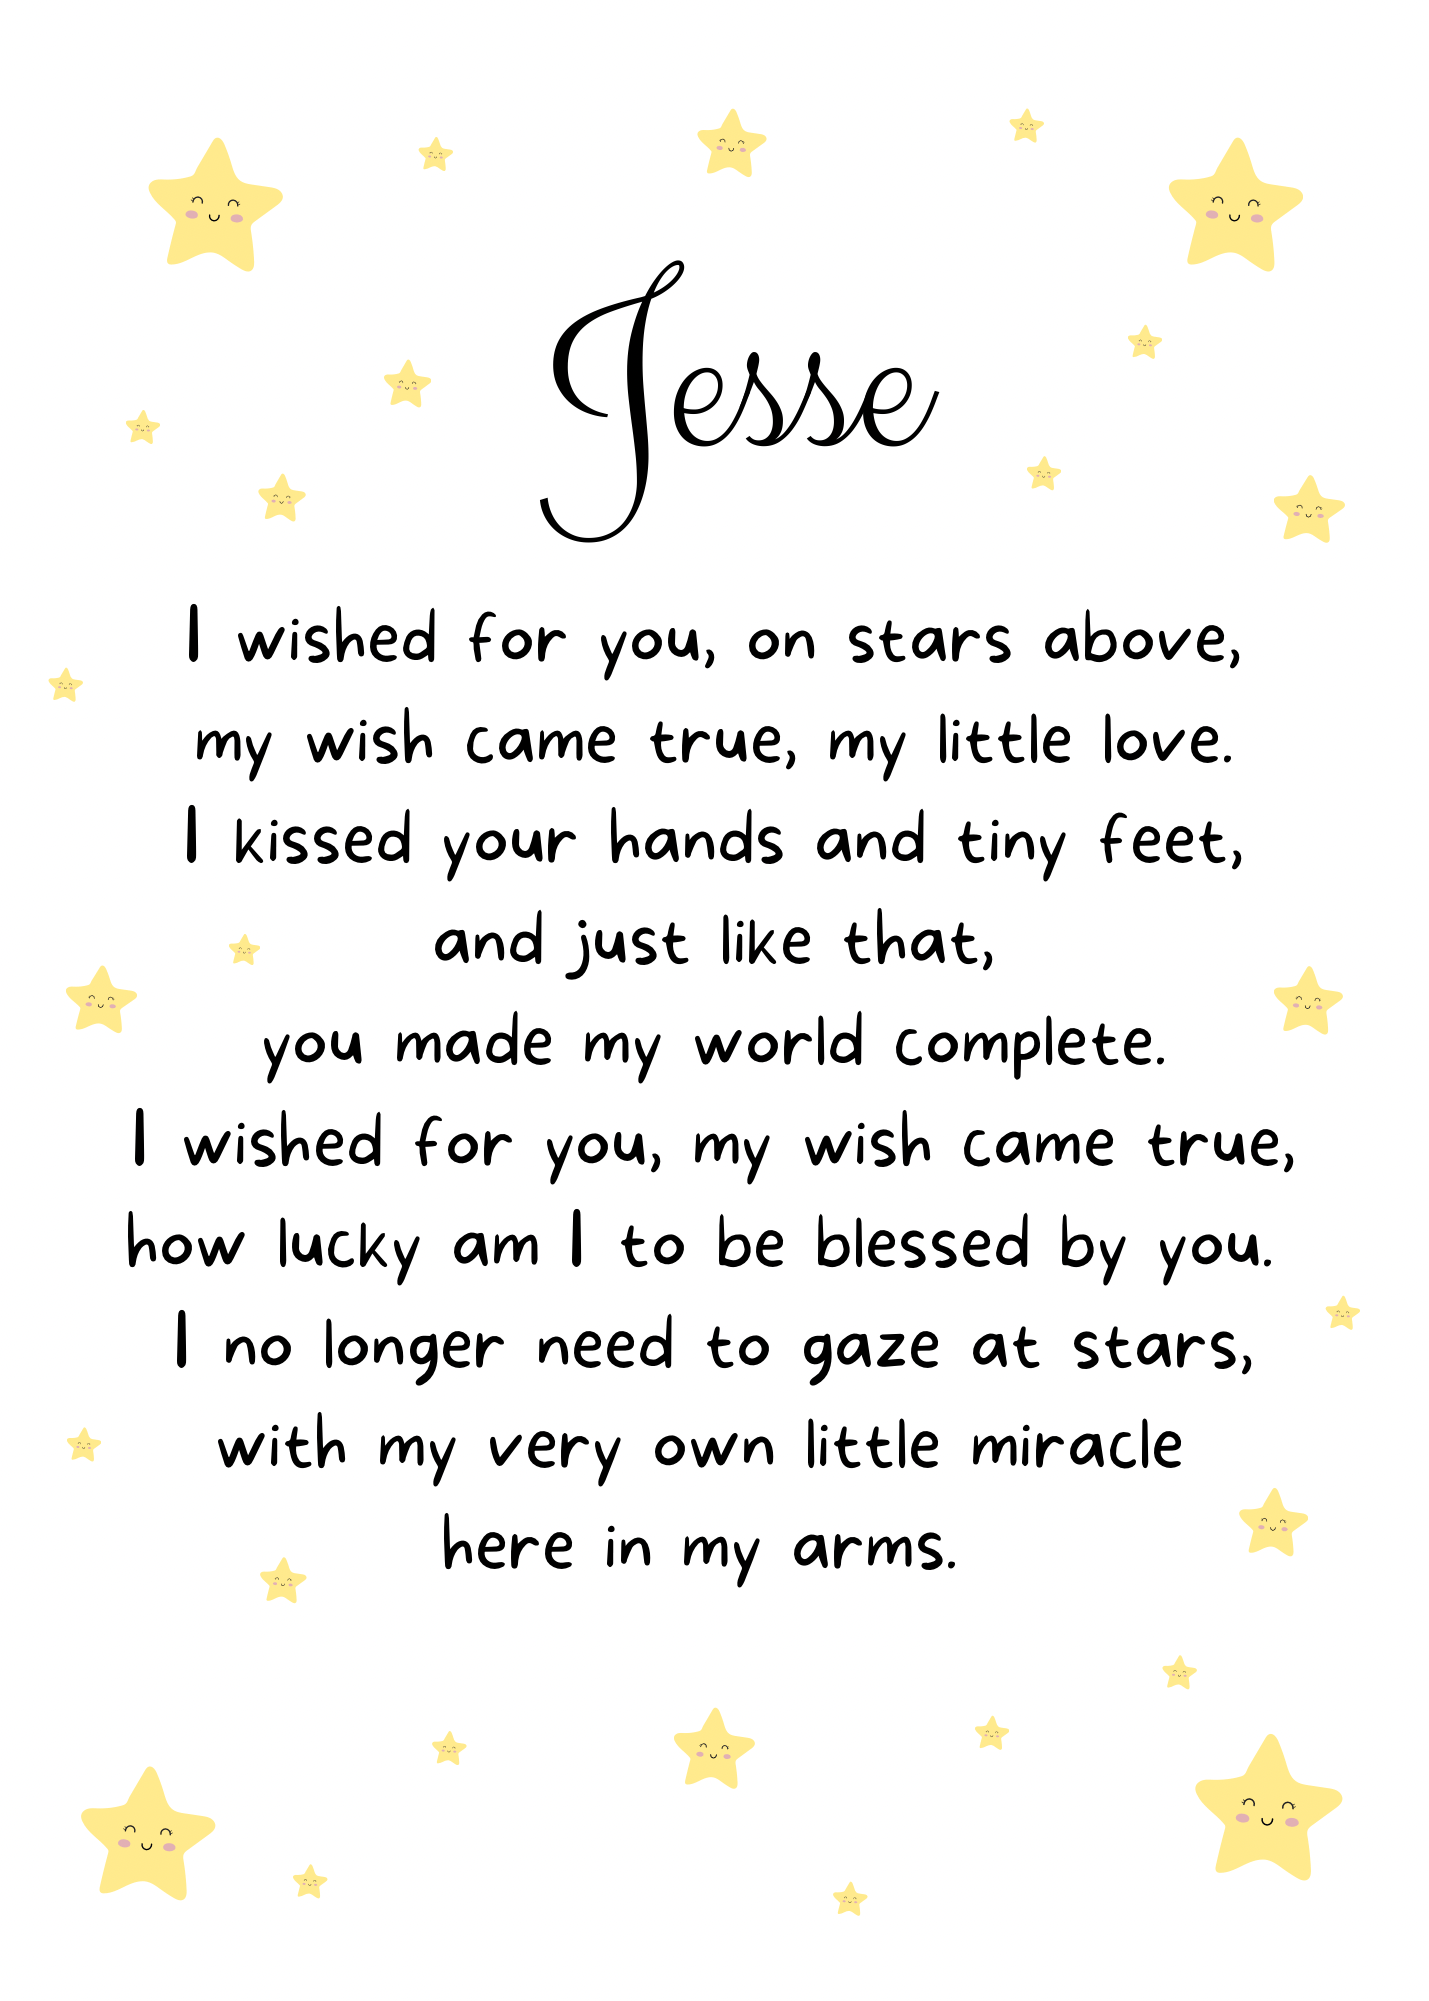 Jesse
I wished for you, on stars above,
my wish came true, my little love.
I kissed your hands and tiny feet,
and just like that,
you made my world complete.
I wished for you, my wish came true,
how lucky am I to be blessed by you.
I no longer need to gaze at stars,
with my very own little miracle
here in my arms.